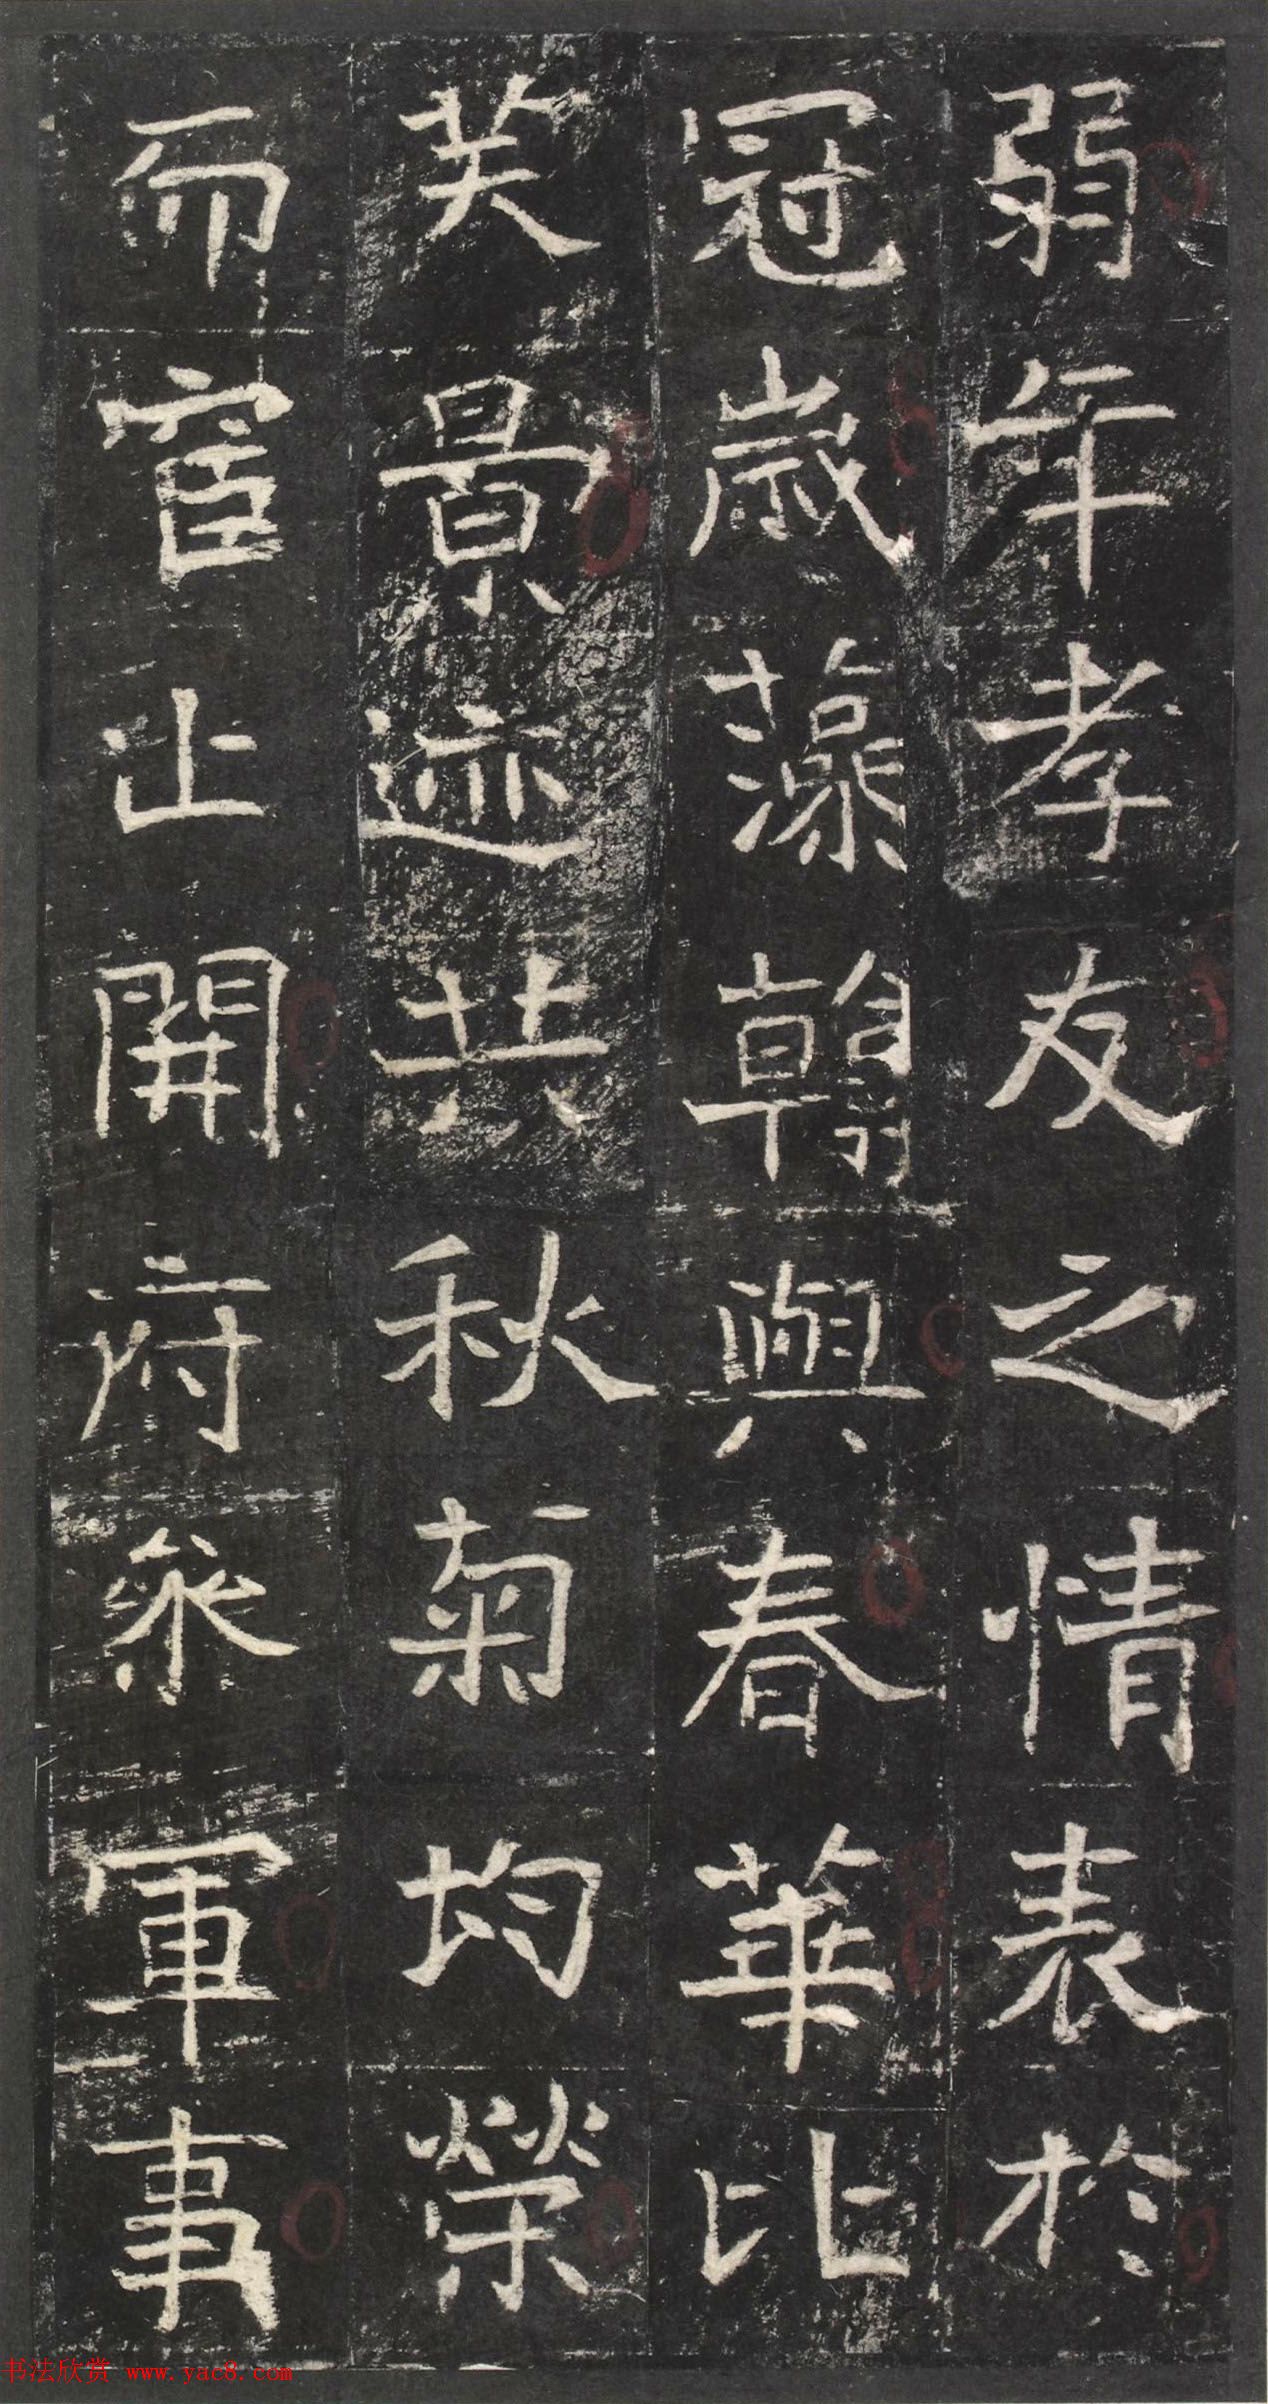 弱年孝友之情表於
冠歲藻翰與春華比
芙景迹共秋菊均榮
而官止開府參軍事
书法欣赏 www.yac8.com